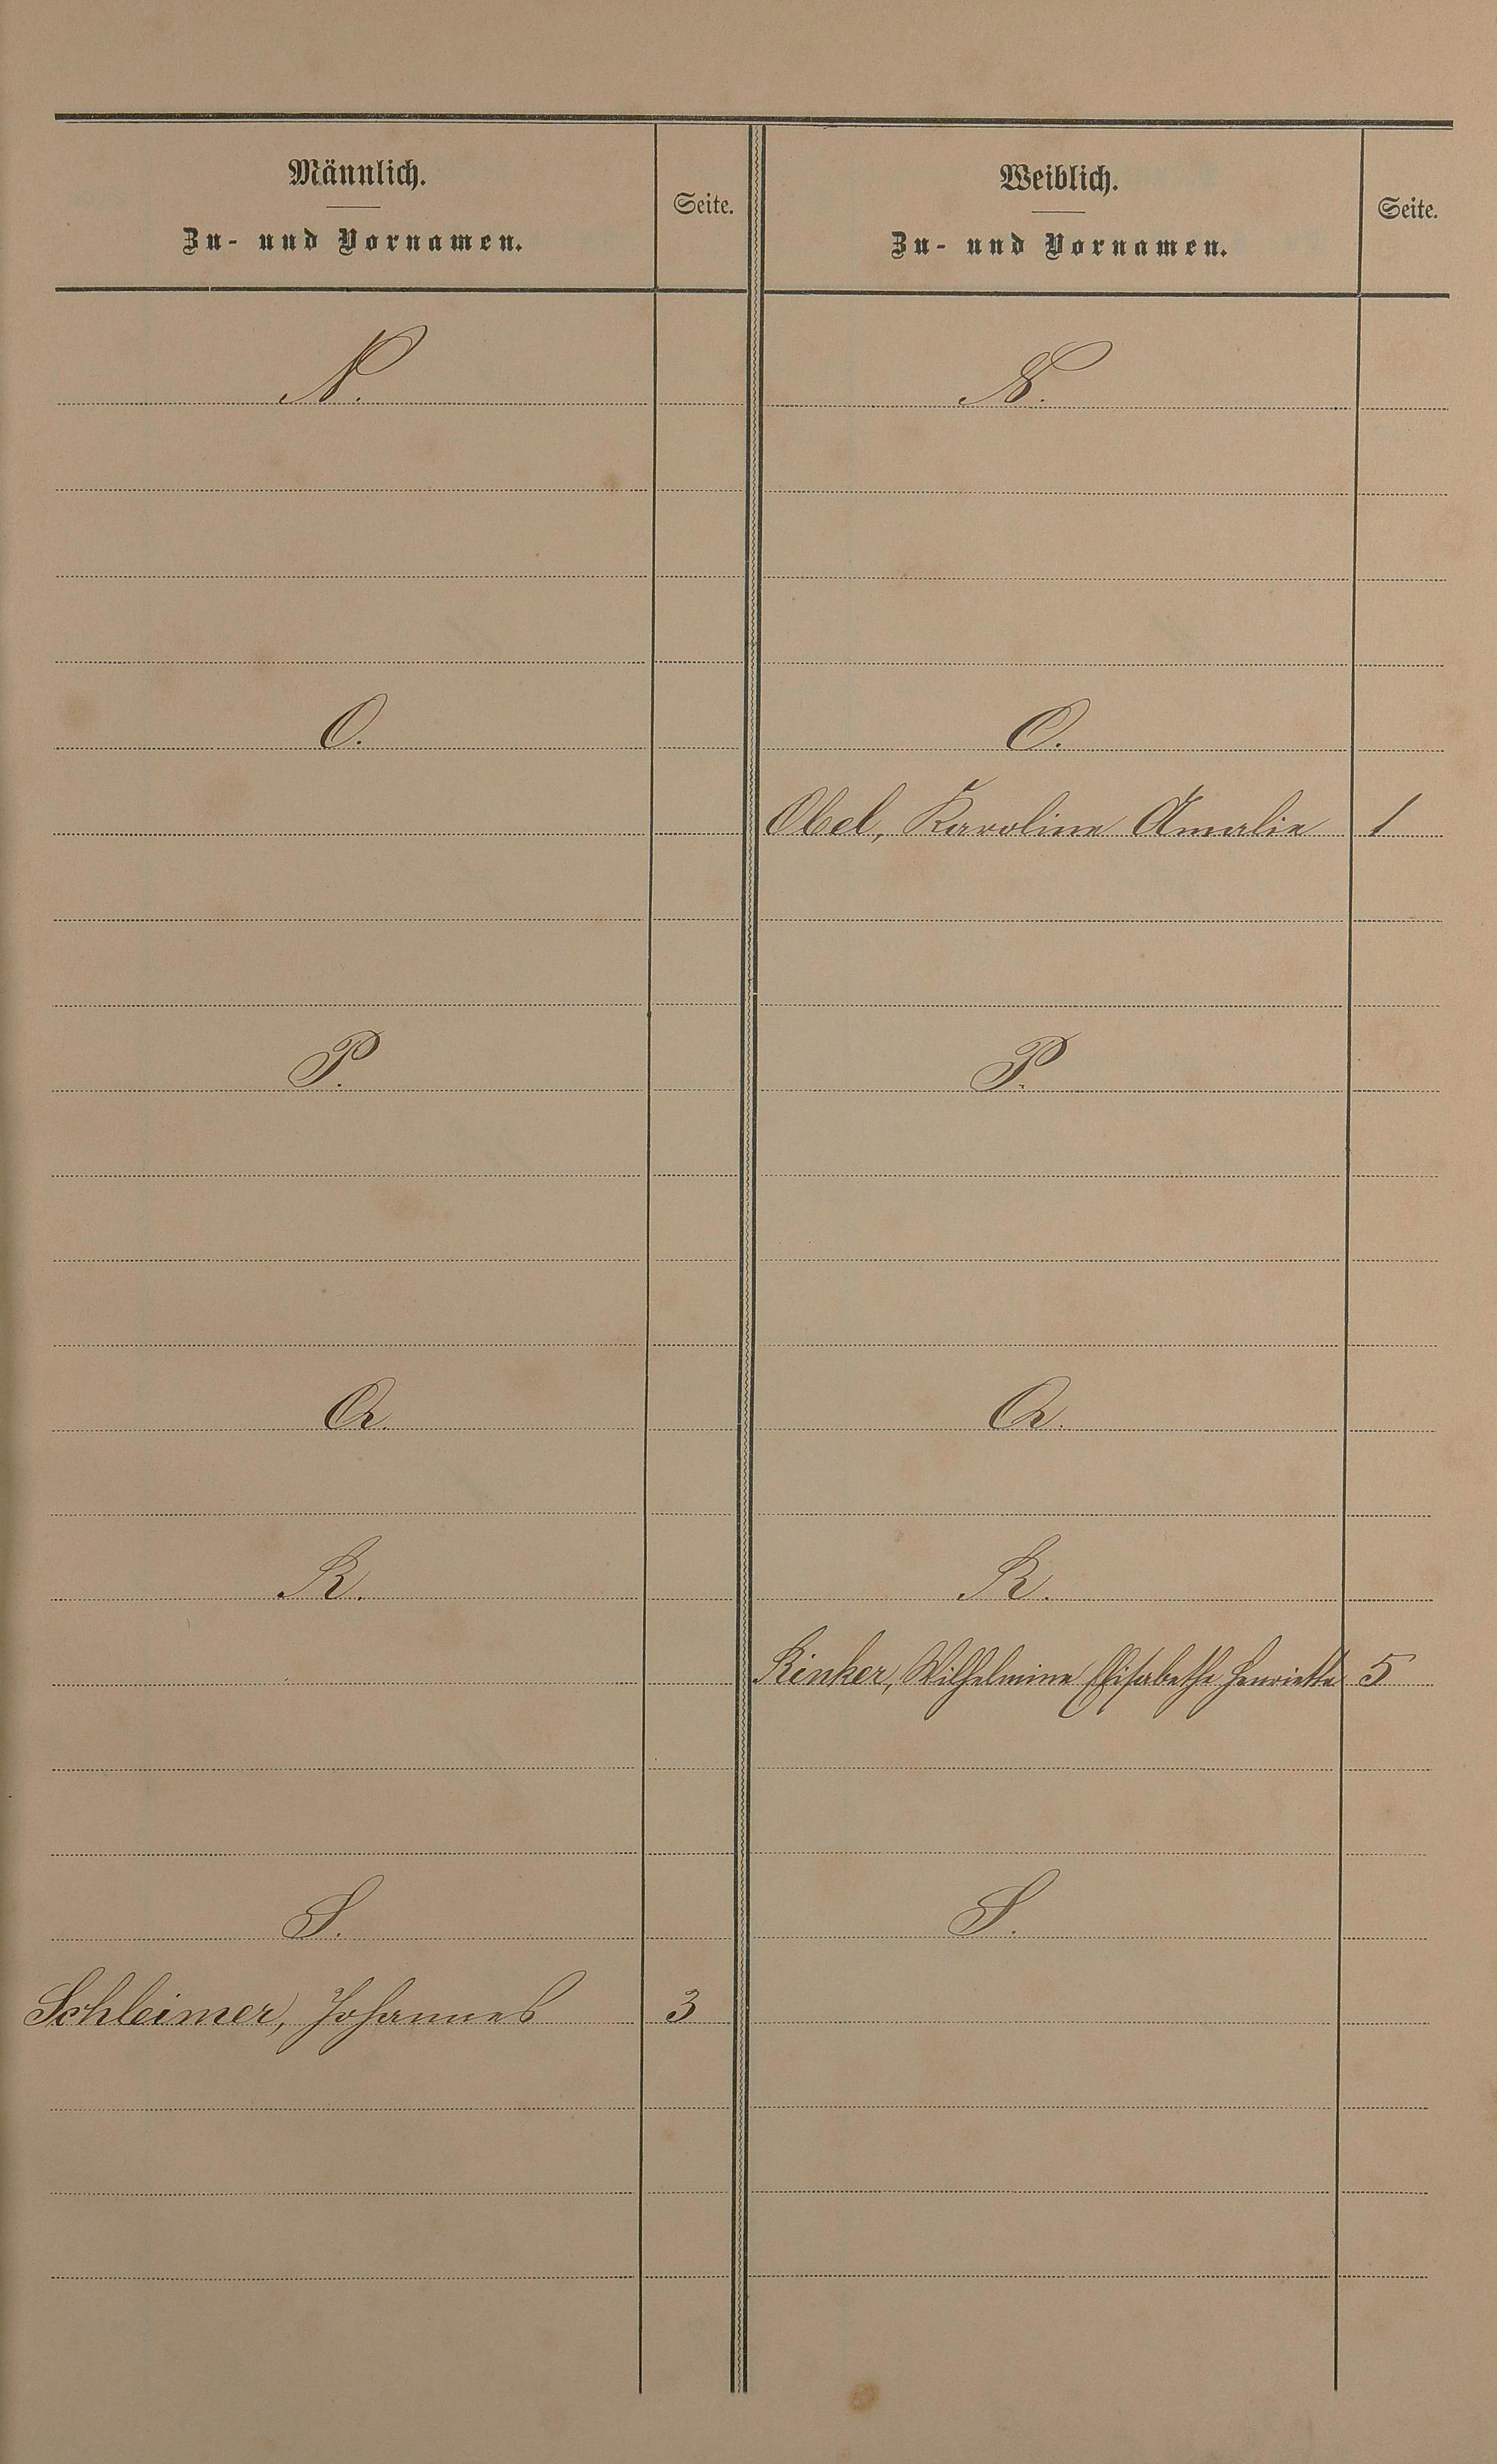 Männlich. Weiblich.
Seite. Seite.
Zu- und Vornamen. Zu- und Vornamen.
N. N.
O. O.
Obel, Karoline Amalie 1
P. P.
Q. Q.
R. R.
Rinker, Wilhelmine Elisabethe Henriette 5
S. S.
Schleimer, Johannes 3